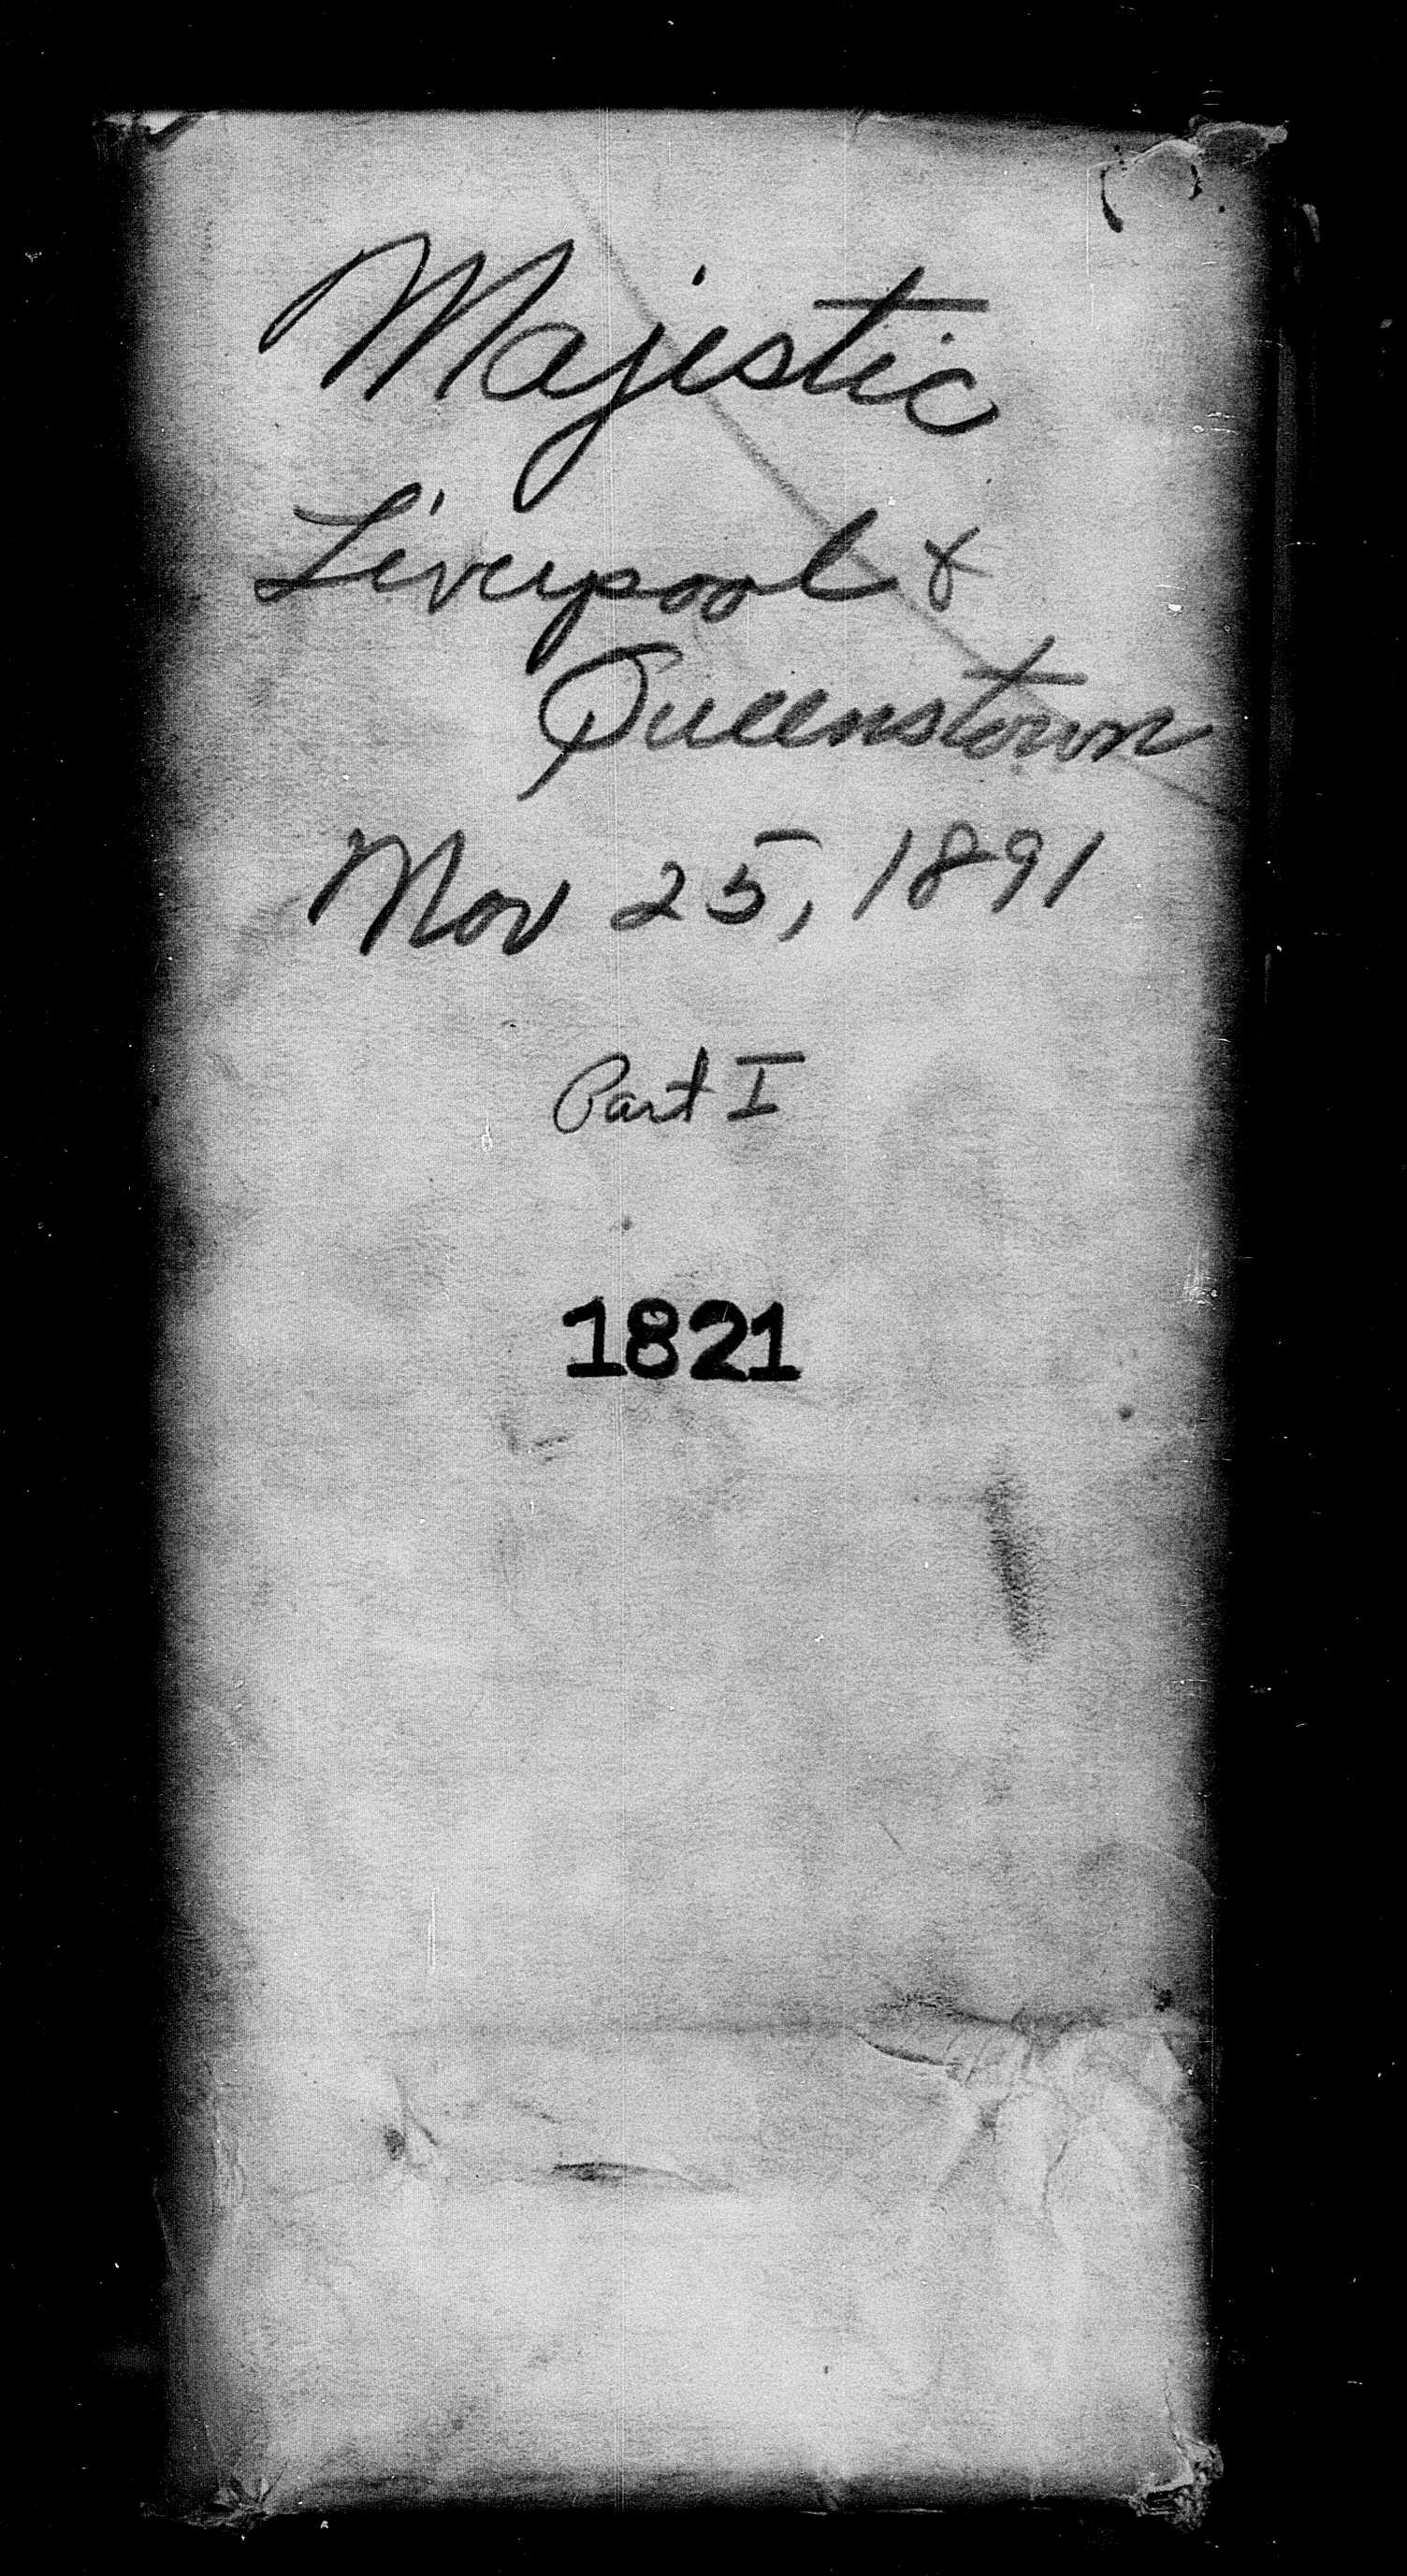 Majestic
Liverpool &
Queenstown
Nov 25, 1891
Part I
1821